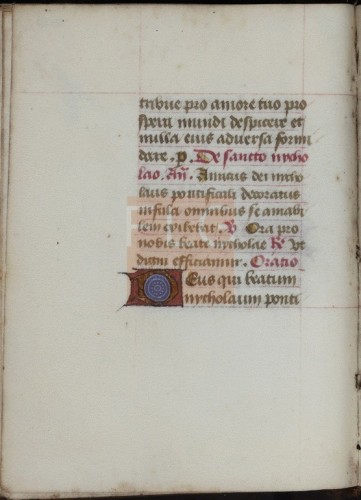 tribue pro amore tuo pro
spera mundi despicere et
nulla eius aduersa formi
dare. p. De sancto nycho
lao. añ. Amicus dei nycho
laus pontificali decoratus
infula omnibus se amabi
lem exibebat. V Ora pro
nobis beate nycholae R Vt
digni efficiamur. Oratio
Deus qui beatum
nycholaum ponti